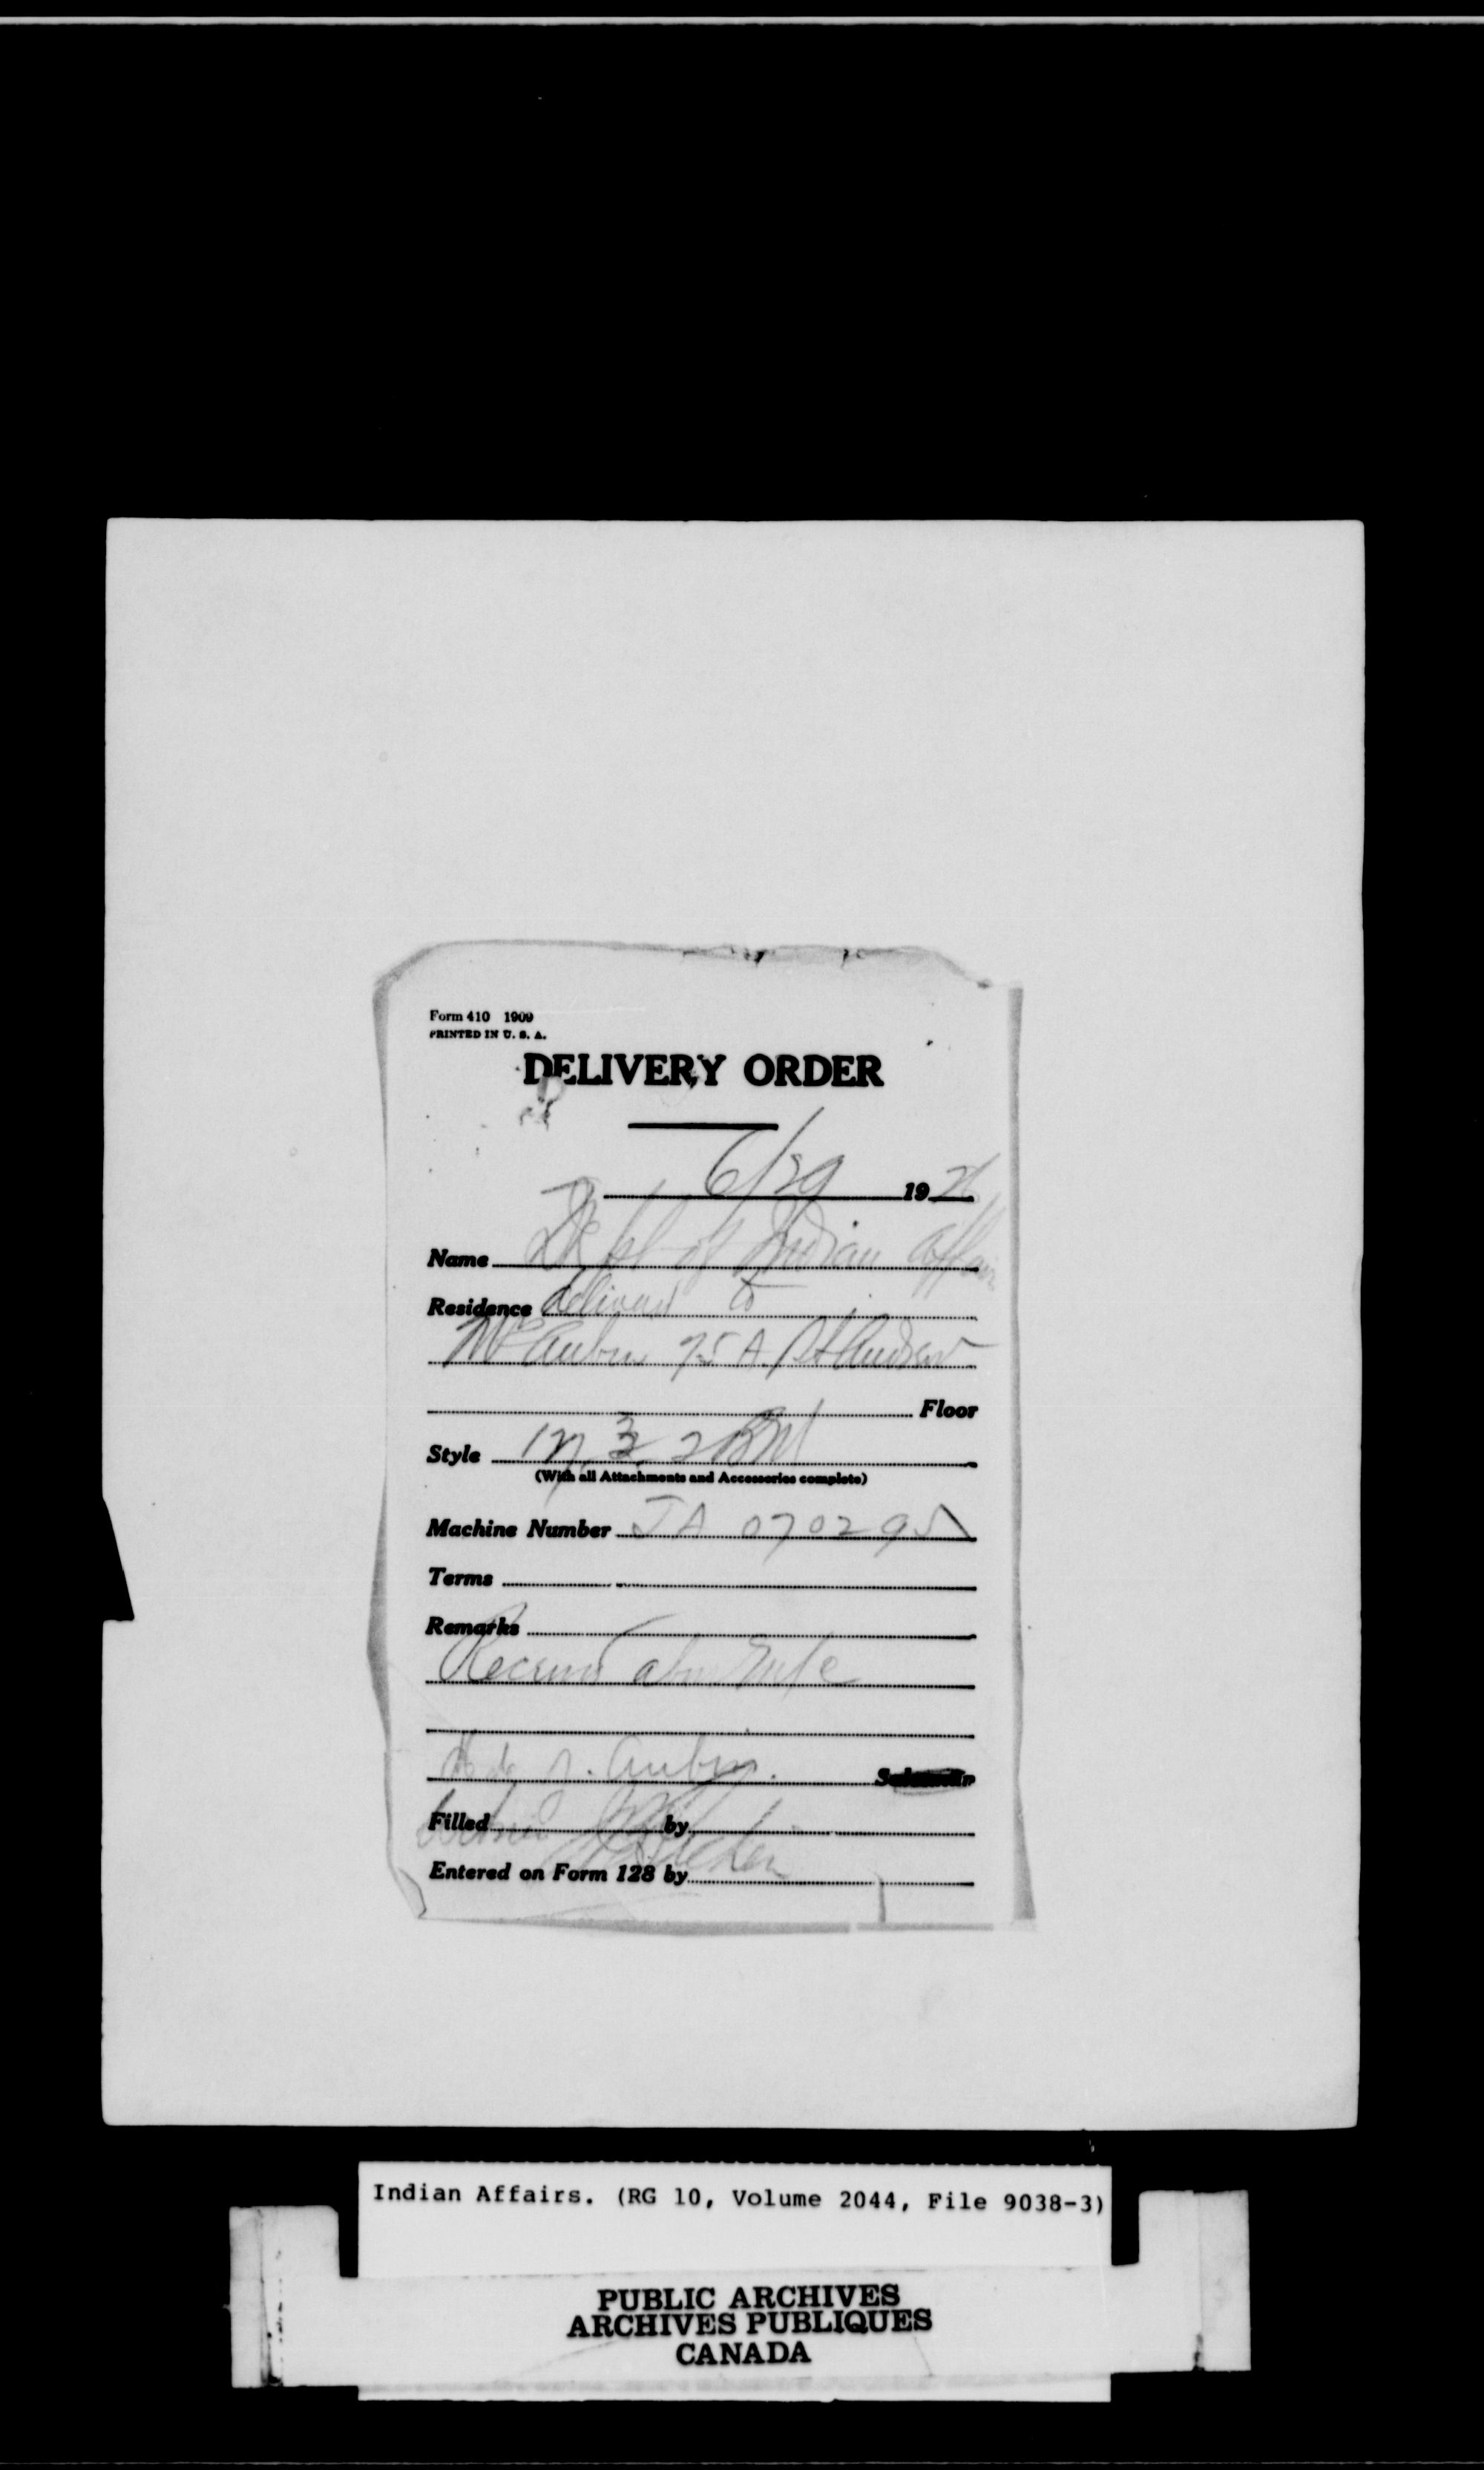 Form 410 1909
PRINTED IN U. S. A.
DELIVERY ORDER
6/29 19
Name Dept of Indian Affairs
Residence deliver to
Mr Aubin 75 A. St Andrew
Floor
Style
(With all Attachments and Accessories complete)
Machine Number JA 070295
Terms
Remarks
Received above
Aubin.
Filled by
Entered on Form 128 by
Indian Affairs. (RG 10, Volume 2044, File 9038-3)
PUBLIC ARCHIVES
ARCHIVES PUBLIQUES
CANADA